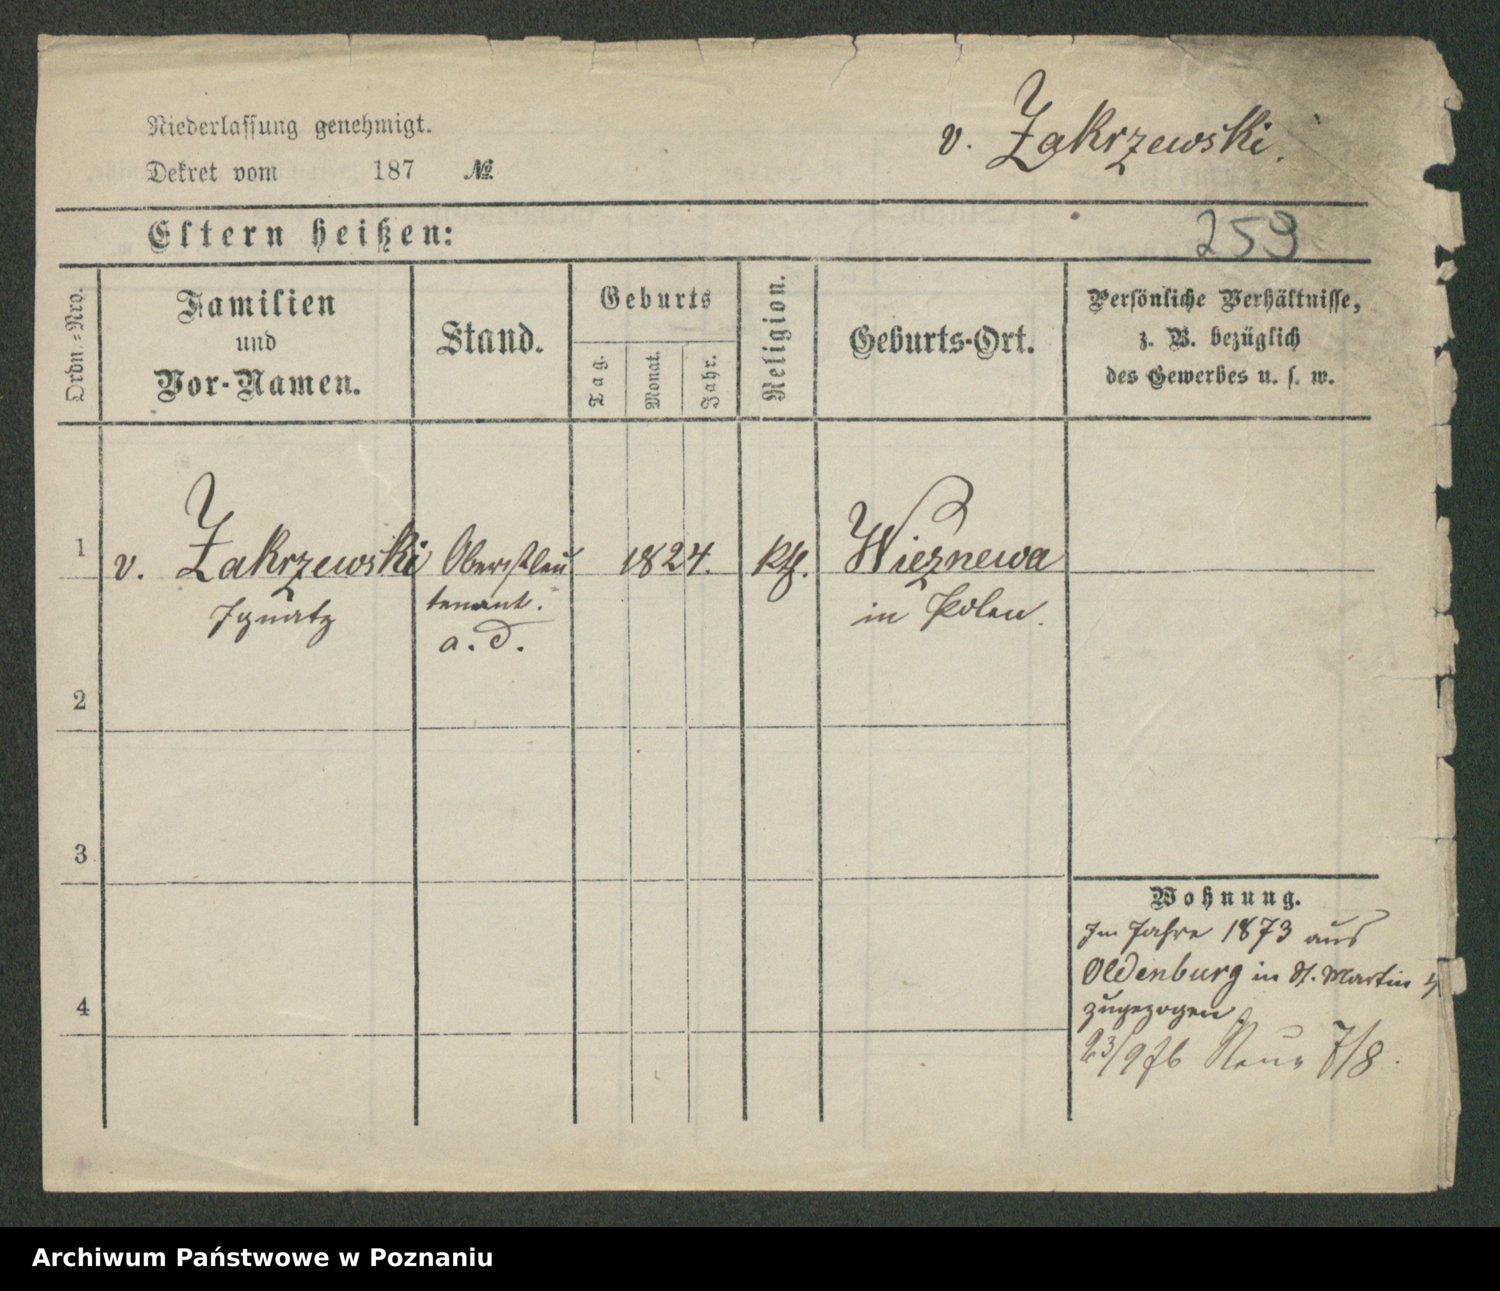 v. Zakrzewski.
Niederlassung genehmigt.
Dekret vom 187 №
Eltern heißen:
259
Ordn.-Nro.
Familien
und
Vor-Namen.
Stand.
Geburts
Tag.
Monat.
Jahr.
Religion.
Geburts-Ort.
Persönliche Verhältnisse,
z. B. bezüglich
des Gewerbes u. s. w.
1 v. Zakrzewski Oberstleu 1824. kth. Wieznewa
Ignatz tenant. in Polen.
a. D.
2
3
4
Wohnung.
Im Jahre 1873 aus
Oldenburg in St. Martin
zugezogen
23/9 76 7/8.
Archiwum Państwowe w Poznaniu